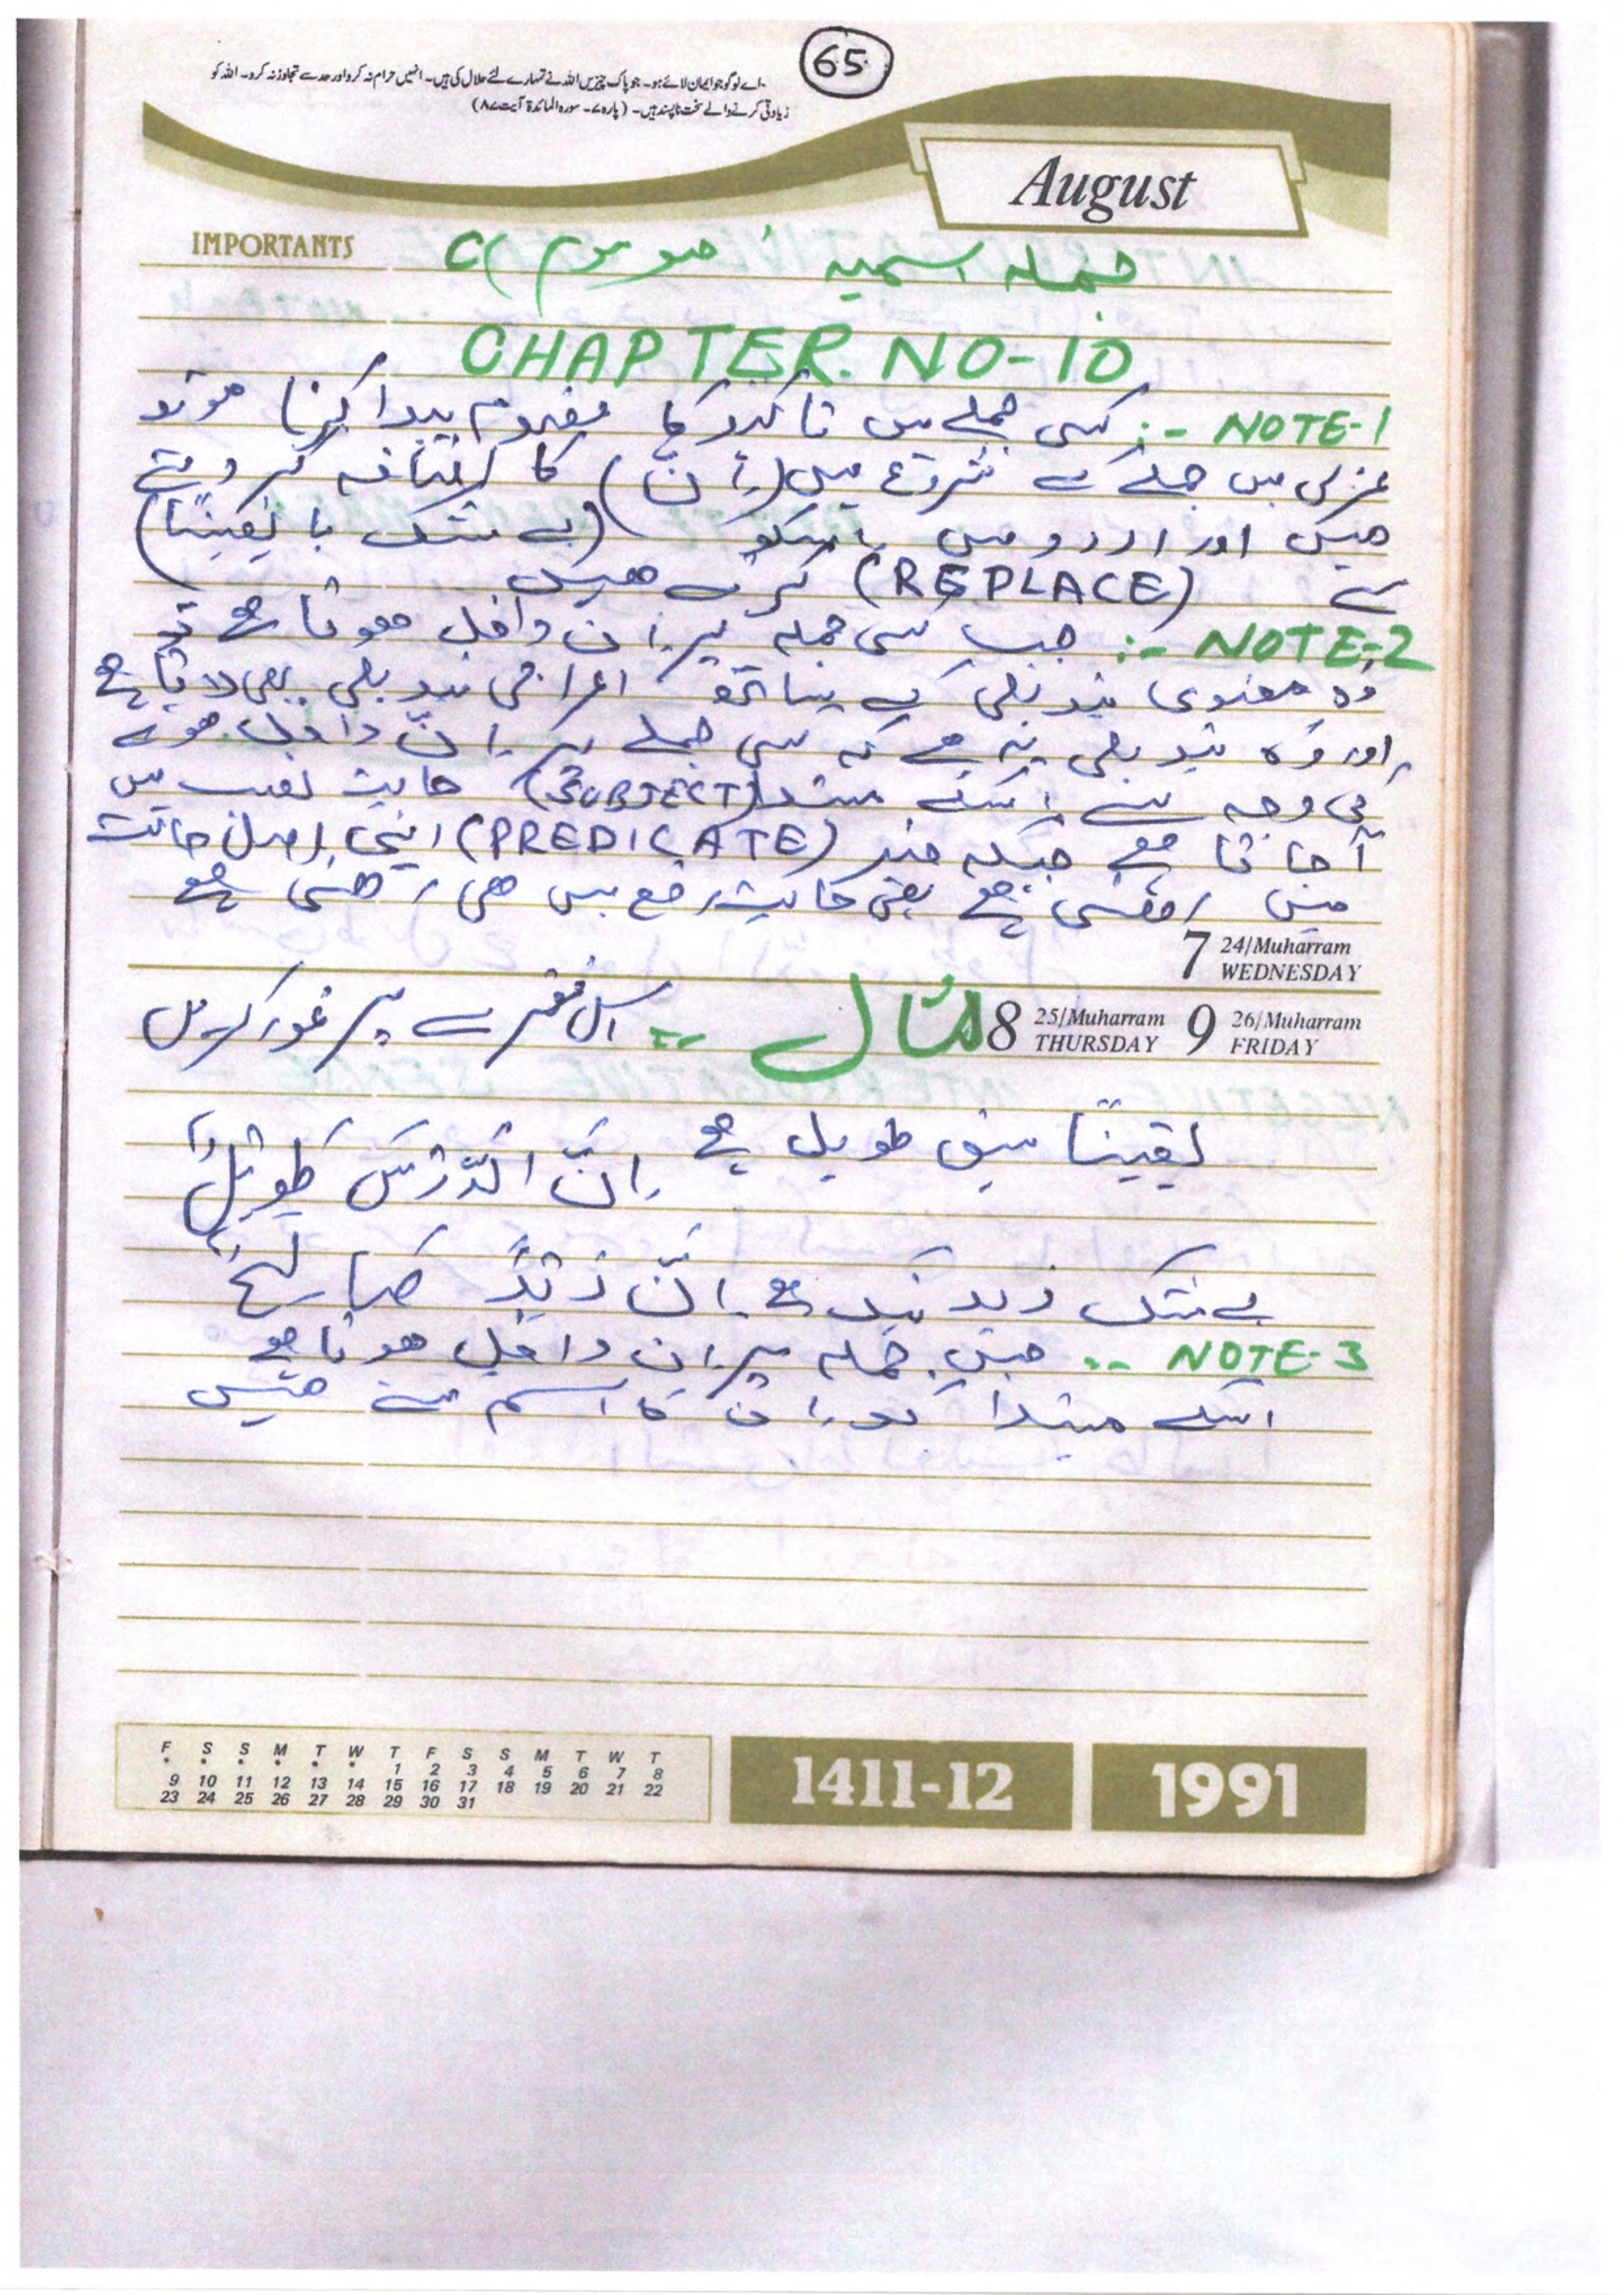 65
اے لوگو جو ایمان لائے ہو۔ جو پاک چیزیں اللہ نے تمہارے لئے حلال کی ہیں۔ انہیں حرام نہ کرو اور حد سے تجاوز نہ کرو۔ اللہ کو
زیادتی کرنے والے سخت ناپسند ہیں۔ (پارہ ۷۔ سورہ المائدۃ آیت ۸۷)
August
IMPORTANTS
جملہ اسمیہ (حصہ سوم)
CHAPTER. NO-10
NOTE-1 :- کسی جملے میں تاکید کا مفہوم پیدا کرنا ہو تو
عربی میں جملے کے شروع میں (اِنَّ) کا اضافہ کر دیتے
ہیں اور اردو میں اسکو (بے شک یا یقینًا)
سے (REPLACE) کرتے ہیں
NOTE-2 :- جب کسی جملہ پر اِن داخل ہوتا ہے تو
وہ معنوی تبدیلی کے ساتھ اعرابی تبدیلی بھی لاتا ہے
اور وہ تبدیلی یہ ہے کہ کسی جملے پر اِنّ داخل ہونے
کی وجہ سے اسکے مبتدا (SUBJECT) حالت نصب میں
آجاتا ہے جبکہ خبر (PREDICATE) اپنی اصل حالت
میں رہتی ہے یعنی حالت رفع میں ہی رہتی ہے
7 24/Muharram WEDNESDAY
8 25/Muharram THURSDAY 9 26/Muharram FRIDAY
مثال :- اس فقرے پر غور کریں
یقینًا سبق طویل ہے اِنَّ الدَّرْسَ طَوِیْلٌ
بے شک زید نیک ہے اِنَّ زَیْدً صَالِحٌ
NOTE-3 :- جس جملہ پر اِن داخل ہوتا ہے
اسکے مبتدا کو اِن کا اسم کہتے ہیں
F S S M T W T F S S M T W T
* * * * * * 1 2 3 4 5 6 7 8
9 10 11 12 13 14 15 16 17 18 19 20 21 22
23 24 25 26 27 28 29 30 31
1411-12
1991